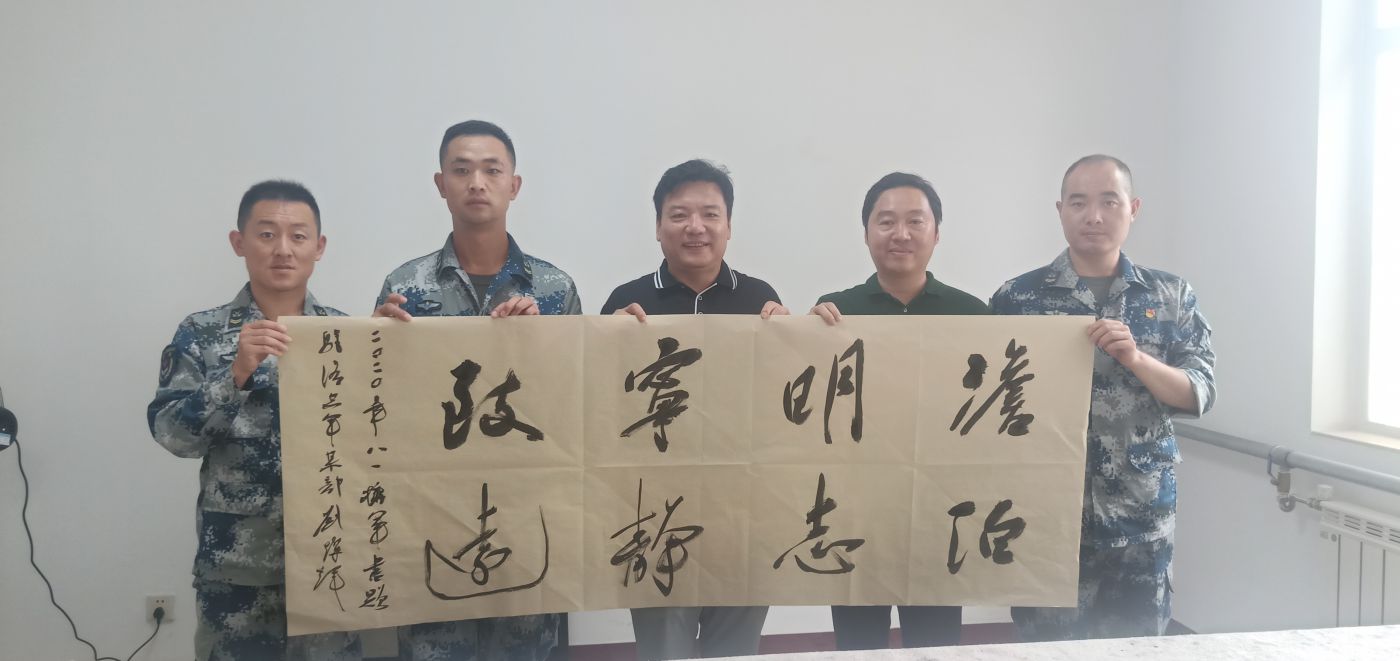 澹泊
明志
寧静
致遠
二〇二〇年八一拥军书题
空军某部